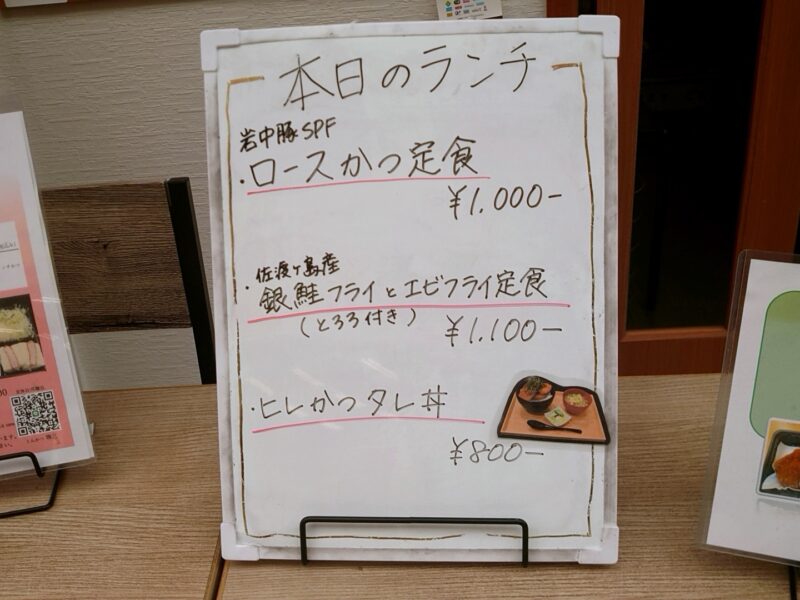 本日のランチ
岩中豚SPF
・ロースかつ定食
¥1,000-
佐渡ヶ島産
・銀鮭フライとエビフライ定食
(とろろ付き)
¥1,100-
・ヒレかつタレ丼
¥800-